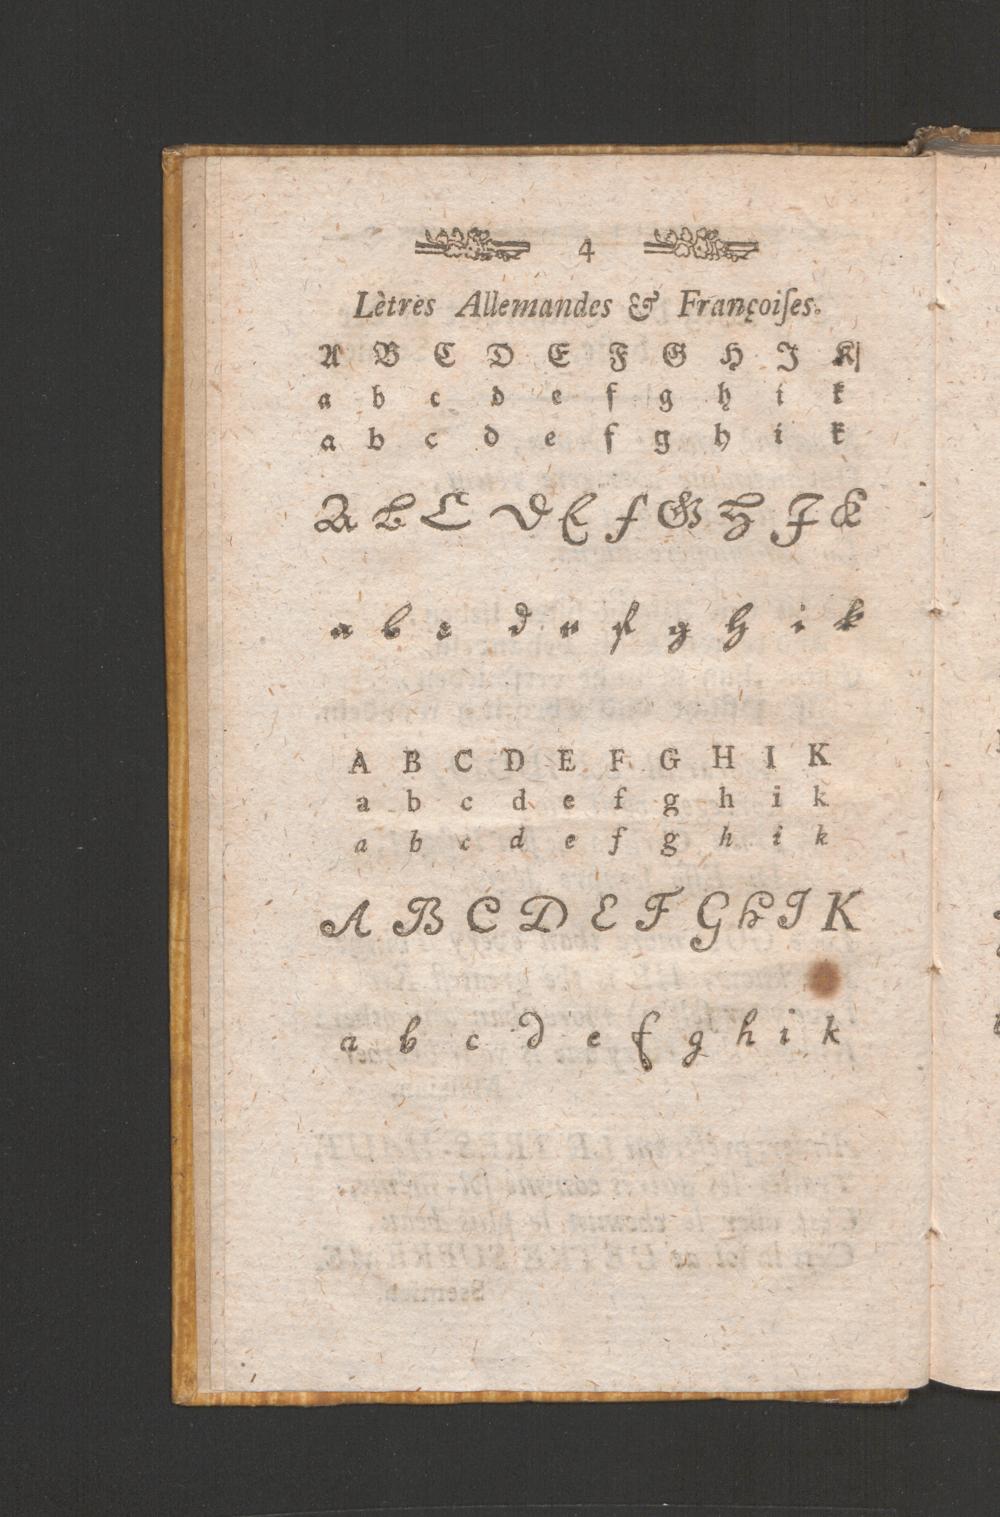 4
Lètres Allemandes & Françoiſes.
A B C D E F G H I K
a b c d e f g h i k
a b c d e f g h i k
A B C D E F G H I K
a b c d e f g h i k
A B C D E F G H I K
a b c d e f g h i k
a b c d e f g h i k
A B C D E F G H I K
a b c d e f g h i k